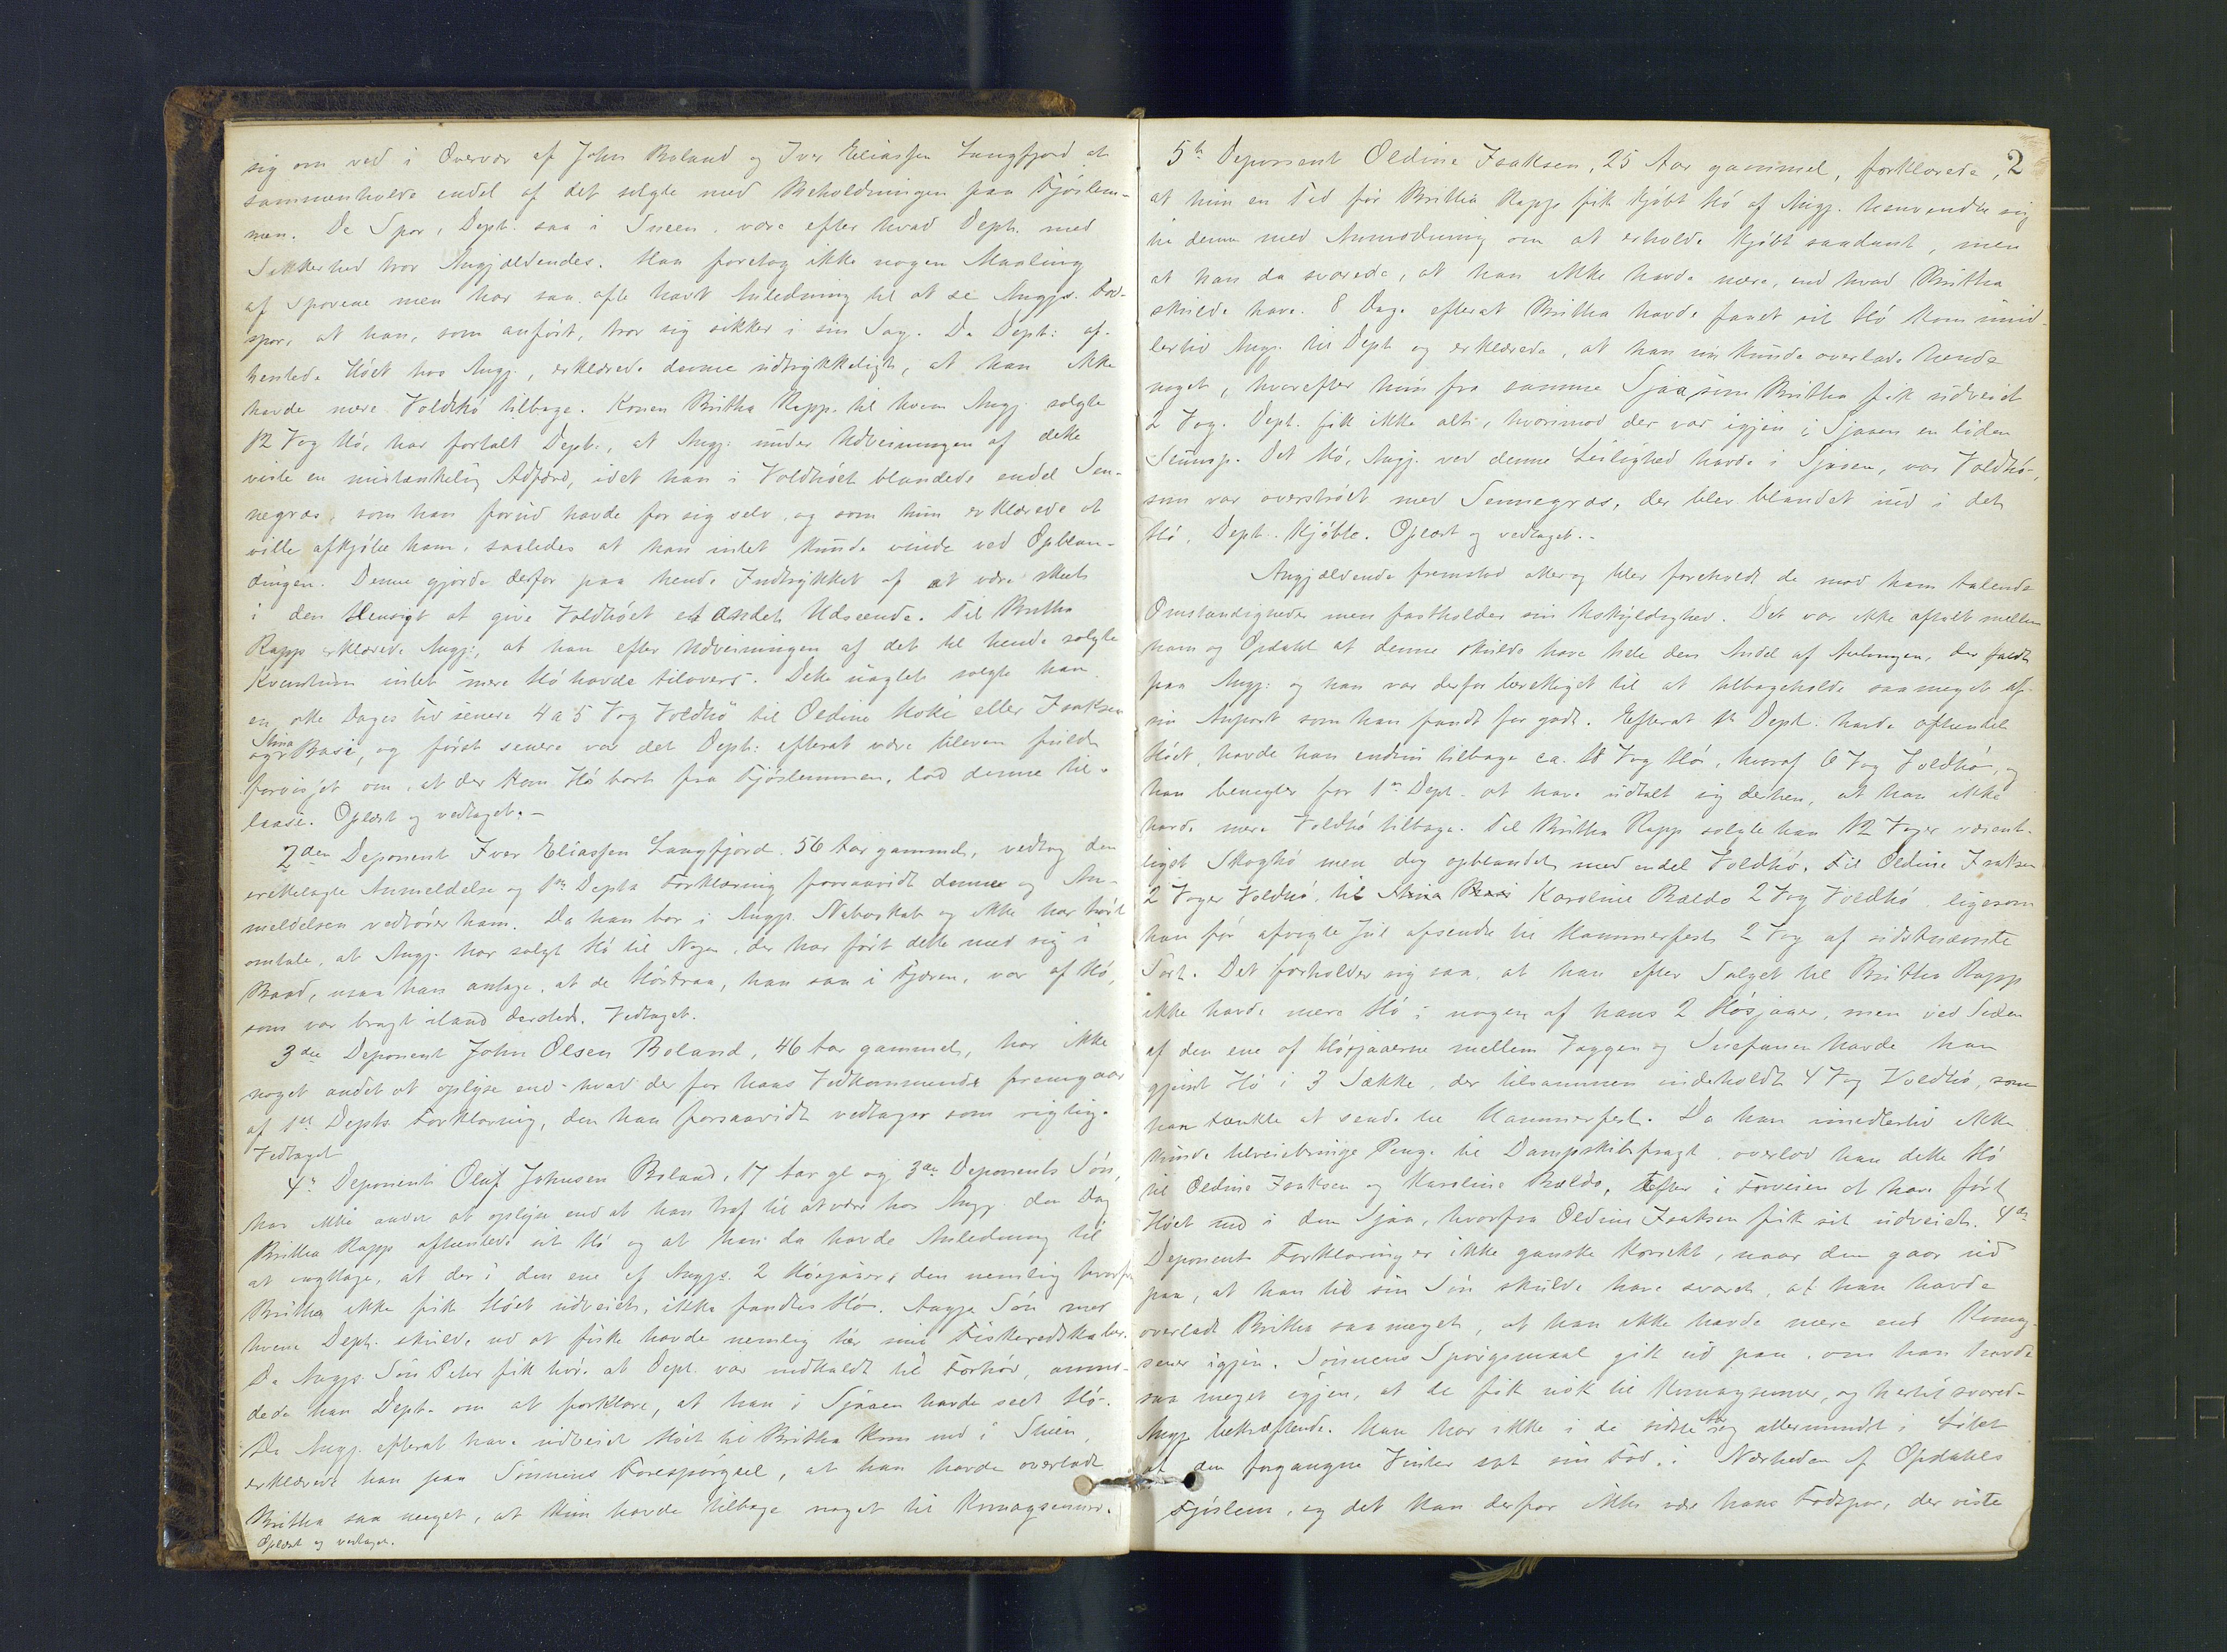 sig om ved i Overvær af John Boland og Iver Eliassen Langfjord at
sammenholde endel af det solgte med Beholdningen paa Fjöslem-
men. De Spor, Dept. saa i Sneen, være efter hvad Dept. med
Sikkerhed tror Angjældendes. Han foretog ikke nogen Maaling
af Sporene men har saa ofte havt Anledning til at se Angjs. Fod-
spor, at han, som anført, tror sig sikker i sin Sag. Da Dept: af-
hentede Höet hos Angj., erklærede denne udtrykkeligt, at han ikke
havde mere Voldhö tilbage. Konen Britha Rapp, til hvem Angj. solgte
12 Vog Hö, har fortalt Dept:, at Angj: under Udveiningen af dette
viste en mistænkelig Adfærd, idet han i Voldhöet blandede endel Sen-
negræs, som han forud havde for sig selv, og som hun erklærede at
ville afkjöbe ham, saaledes at han intet kunde vinde ved Opblan-
dingen. Denne gjorde derfor paa hende Indtrykket af at være skeet
i den Hensigt at give Voldhöet et andet Udseende. Til Britha
Rapp erklærede Angj:, at han efter Udveiningen af det til hende solgte
Kvantum intet mere Hö havde tilovers. Dette uagtet solgte han
en otte Dages Tid senere 4 a 5 Vog Voldhö til Oedine Koki eller Isaksen
og Stina Basi, og først senere var det Dept: efterat være bleven fuldt
forvisset om, at der kom Hö bort fra Fjöslemmen, lod denne til-
laase. Oplæst og vedtaget. –
2den Deponent Iver Eliassen Langfjord, 56 Aar gammel, vedtog den
Anmeldelse og 1ste Depts Forklaring forsaavidt denne og An-
meldelsen vedrører ham. Da han bor i Angjs. Naboskab og ikke har hørt
omtale, at Angj. har solgt Hö til Nogen, der har ført dette med sig i
Baad, maa han antage, at de Höstraa, han saa i Fjæren, var af Hö,
som var bragt iland dersteds. Vedtaget.
3die Deponent John Olsen Boland, 46 Aar gammel, har ikke
noget andet at oplyse end hvad der for hans Vedkommende fremgaar
af 1ste Depts Forklaring, den han forsaavidt vedtager som rigtig.
Vedtaget
4de Deponent Oluf Johnsen Boland, 17 Aar gl og 3die Deponents Sön,
har ikke andet at oplyse end at han traf til at være hos Angj. den Dag
Britha Rapp afhentede sit Hö og at han da havde Anledning til
at iagttage, at der i den ene af Angjs. 2 Høsjaaer, den nemlig hvorfra
Britha ikke fik Höet udveiet, ikke fandtes Hö. Angjs Sön med
hvem Dept. skulde ud at fiske havde nemlig her sine Fiskeredskaber.
Da Angjs. Sön Peter fik høre at Dept. var indkaldt til Forhør, anmo-
dede han Dept. om at forklare, at han i Sjaaen havde seet Hö.
Da Angj. efterat have udveiet Höet til Britha kom ind i Stuen,
erklærede han paa Sønnens Forespørgsel, at han havde overladt
Britha saa meget, at kun havde tilbage noget til Komagsenner.
Oplæst og vedtaget.
2
5te Deponent Oldine Isaksen, 25 Aar gammel, forklarede,
at hun en Tid før Britha Rapp fik kjøbt Hö af Angj. henvendte sig
til denne med Anmodning om at erholde kjøbt saadant, men
at han da svarede, at han ikke havde mere, end hvad Britha
skulde have. 8 Dage efterat Britha havde faaet sit Hö kom imid-
lertid Angj. til Dept og erklærede, at han nu kunde overlade hende
noget, hvorefter hun fra samme Sjaa, som Britha fik udveiet
2 Vog. Dept. fik ikke alt, hvorimod der var igjen i Sjaaen en liden
Slump. Det Hö, Angj. ved denne Leilighed havde i Sjaaen, var Voldhö,
som var overstrøet med Sennegræs, der blev blandet ind i det
Hö, Dept. kjøbte. Oplæst og vedtaget. –
Angjældende fremstod atter og blev foreholdt de mod ham talende
Omstændigheder men fastholder sin Uskyldighed. Det var ikke aftalt mellem
ham og Opdahl at denne skulde have hele den Andel af Avlingen, der faldt
paa Angj: og han var derfor berettiget til at tilbageholde saameget af
sin Anpart som han fandt for godt. Efterat 1ste Dept. havde afhentet
Höet, havde han endnu tilbage ca. 18 Vog Hö, hvoraf 6 Vog Voldhö, og
han benegter for 1ste Dept. at have udtalt sig derhen, at han ikke
havde mere Voldhö tilbage. Til Britha Rapp solgte han 12 Voger væsent-
ligst Skoghö men dog opblandet med endel Voldhö. Til Oldine Isaksen
2 Voger Voldhö, til Stina Basi Karoline Baldo 2 Vog Voldhö, ligesom
han før afvigte Jul afsendte til Hammerfest 2 Vog af sidstnævnte
Sort. Det forholder sig saa, at han efter Salget til Britha Rapp
ikke havde mere Hö i nogen af hans 2 Høsjaaer, men ved Siden
af den ene af Høsjaaerne mellem Væggen og Snefanen havde han
gjemt Hö i 3 Sække, der tilsammen indeholdt 4 Vog Voldhö, som
han tænkte at sende til Hammerfest. Da han imidlertid ikke
kunde tilveiebringe Penge til Dampskibsfragt overlod han dette Hö
til Oldine Isaksen og Karoline Baldo, Efter i Forveien at have ført
Höet ind i den Sjaa, hvorfra Oldine Isaksen fik sit udveiet. 4de
Deponents Forklaring er ikke ganske korrekt, naar den gaar ud
paa, at han til sin Sön skulde have svaret, at han havde
overladt Britha saa meget, at han ikke havde mere end Komag-
senner igjen. Sønnens Spørgsmaal gik ud paa, om han havde
saa meget igjen, at de fik nok til Komagsenner, og hertil svarede
Angj. bekræftende. Han har ikke i de sidste Aar og allermindst i Løbet
af den forgangne Vinter sat sin Fod i Nærheden af Opdahls
Fjöslem, og det kan derfor ikke være hans Fodspor, der viste